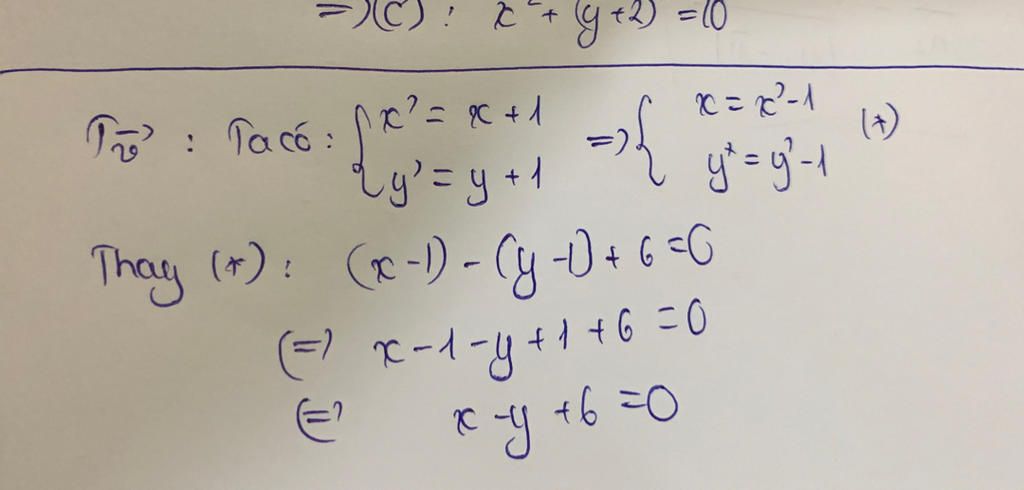 => (C) : x² + (y+2) = 10
T_v⃗ : Ta có : { x' = x + 1 => { x = x' - 1 (*)
y' = y + 1 y* = y' - 1
Thay (*) : (x - 1) - (y - 1) + 6 = 0
(=) x - 1 - y + 1 + 6 = 0
(=) x - y + 6 = 0